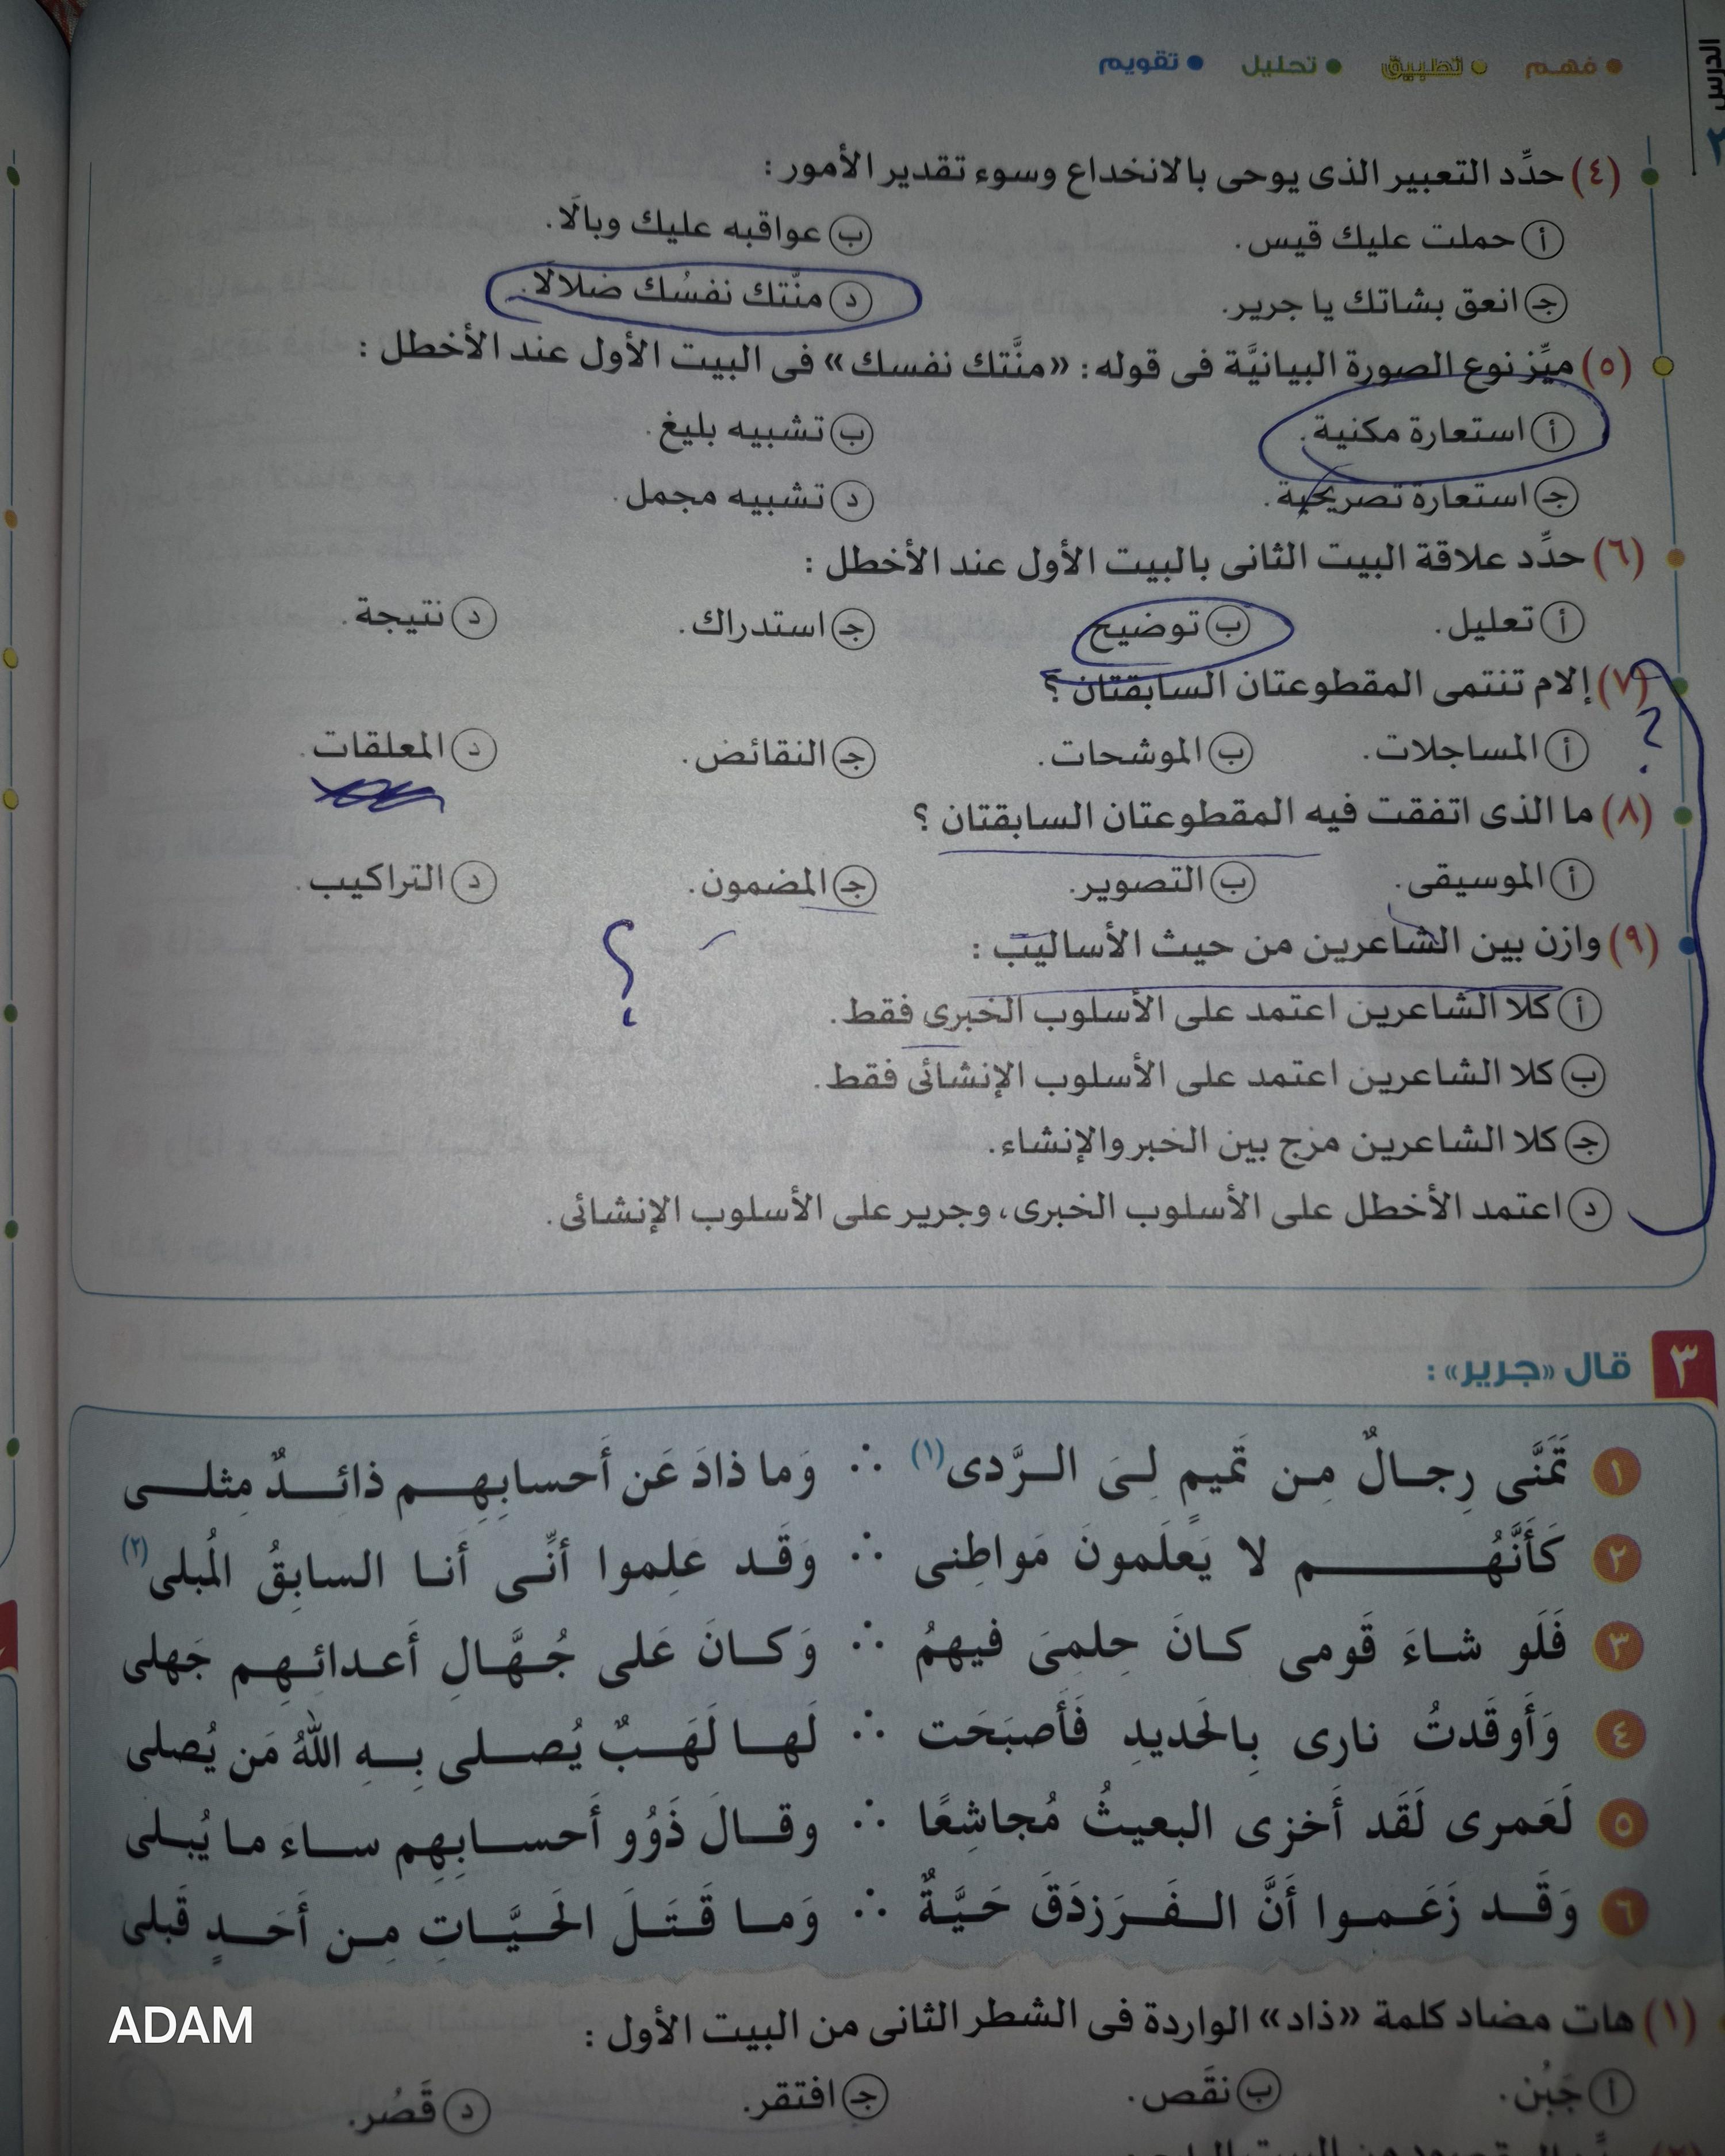 الدرس ٢
فهم • تطبيق • تحليل • تقويم
(٤) حدِّد التعبير الذى يوحى بالانخداع وسوء تقدير الأمور :
أ حملت عليك قيس. ب عواقبه عليك وبالًا.
جـ انعق بشاتك يا جرير. د منّتك نفسُك ضلالًا.
(٥) ميِّز نوع الصورة البيانيَّة فى قوله: «منَّتك نفسك» فى البيت الأول عند الأخطل :
أ استعارة مكنية. ب تشبيه بليغ.
جـ استعارة تصريحية. د تشبيه مجمل.
(٦) حدِّد علاقة البيت الثانى بالبيت الأول عند الأخطل :
أ تعليل. ب توضيح جـ استدراك. د نتيجة.
(٧) إلام تنتمى المقطوعتان السابقتان ؟
؟
أ المساجلات. ب الموشحات. جـ النقائض. د المعلقات.
(٨) ما الذى اتفقت فيه المقطوعتان السابقتان ؟
أ الموسيقى. ب التصوير. جـ المضمون. د التراكيب.
(٩) وازن بين الشاعرين من حيث الأساليب :
؟
أ كلا الشاعرين اعتمد على الأسلوب الخبرى فقط.
ب كلا الشاعرين اعتمد على الأسلوب الإنشائى فقط.
جـ كلا الشاعرين مزج بين الخبر والإنشاء.
د اعتمد الأخطل على الأسلوب الخبرى، وجرير على الأسلوب الإنشائى.
٣ قال «جرير» :
١ تَمَنَّى رِجـالٌ مِـن تَميمٍ لِـىَ الـرَّدى(١) ∴ وَما ذادَ عَن أَحسابِهِـم ذائِـدٌ مِثلـى
٢ كَأَنَّهُـم لا يَعلَمونَ مَواطِنى ∴ وَقَـد عَلِموا أنِّـى أنـا السابِقُ المُبلى(٢)
٣ فَلَو شـاءَ قَومى كـانَ حِلمِىَ فيهِمُ ∴ وَكـانَ عَلى جُـهَّـالِ أَعـدائـهِـم جَهلى
٤ وَأَوقَدتُ نارى بِالحَديدِ فَأَصبَحَت ∴ لَهـا لَهَـبٌ يُصـلـى بِـهِ اللهُ مَن يُصلى
٥ لَعَمرى لَقَد أَخزى البعيثُ مُجاشِعًا ∴ وقـالَ ذَوُو أَحسـابِهِم سـاءَ ما يُبـلى
٦ وَقَـد زَعَـمـوا أَنَّ الـفَـرَزدَقَ حَيَّةٌ ∴ وَمـا قَـتَـلَ الحَـيَّـاتِ مِـن أَحَـدٍ قَبلى
(١) هات مضاد كلمة «ذاد» الواردة فى الشطر الثانى من البيت الأول :
أ جَبُن. ب نقَص. جـ افتقر. د قَصُر.
ADAM